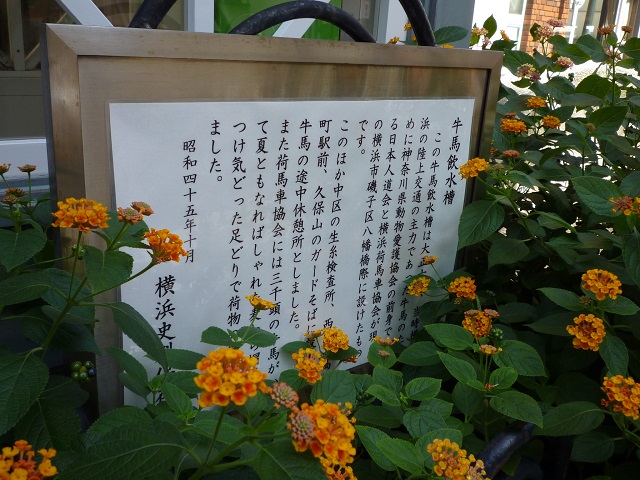 牛馬飲水槽
この牛馬飲水槽は大
浜の陸上交通の主力であ
牛馬の
めに神奈川県動物愛護協会の前身
る日本人道会と横浜荷馬車協会が
の横浜市磯子区八幡橋際に設けたも
です。
このほか中区の生糸検査所、西
町駅前、久保山のガードそばに
牛馬の途中休憩所としました。
また荷馬車協会には三千頭の 馬が
て夏ともなればしゃれ
つけ気どった足どりで荷物
ました。
昭和四十五年十月
横浜史